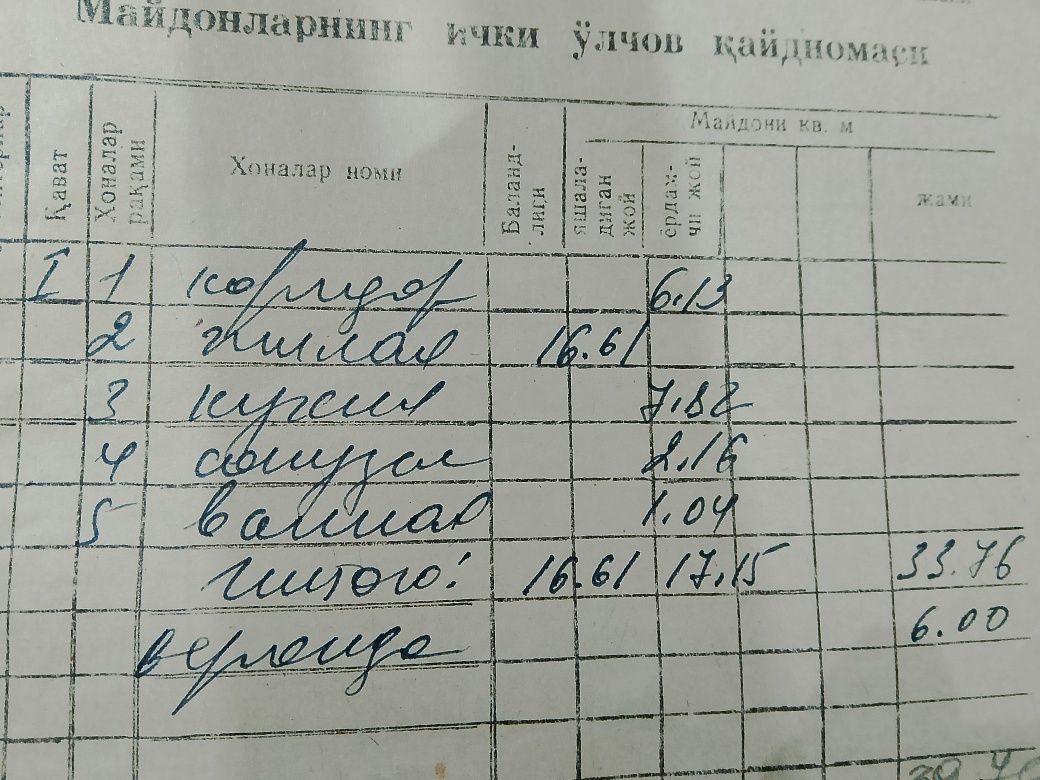 Майдонларнинг ички ўлчов қайдномаси
Қават Хоналар рақами Хоналар номи Баланд-лиги яшала-диган жой ёрдам-чи жой Майдони кв. м жами
I 1 коридор 6.13
2 жилая 16.61
3 кухня 7.82
4 санузел 2.16
5 ванная 1.04
Итого: 16.61 17.15 33.76
веранда 6.00